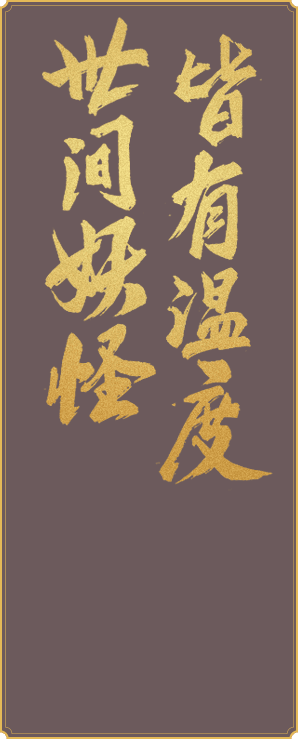 世间妖怪
皆有温度